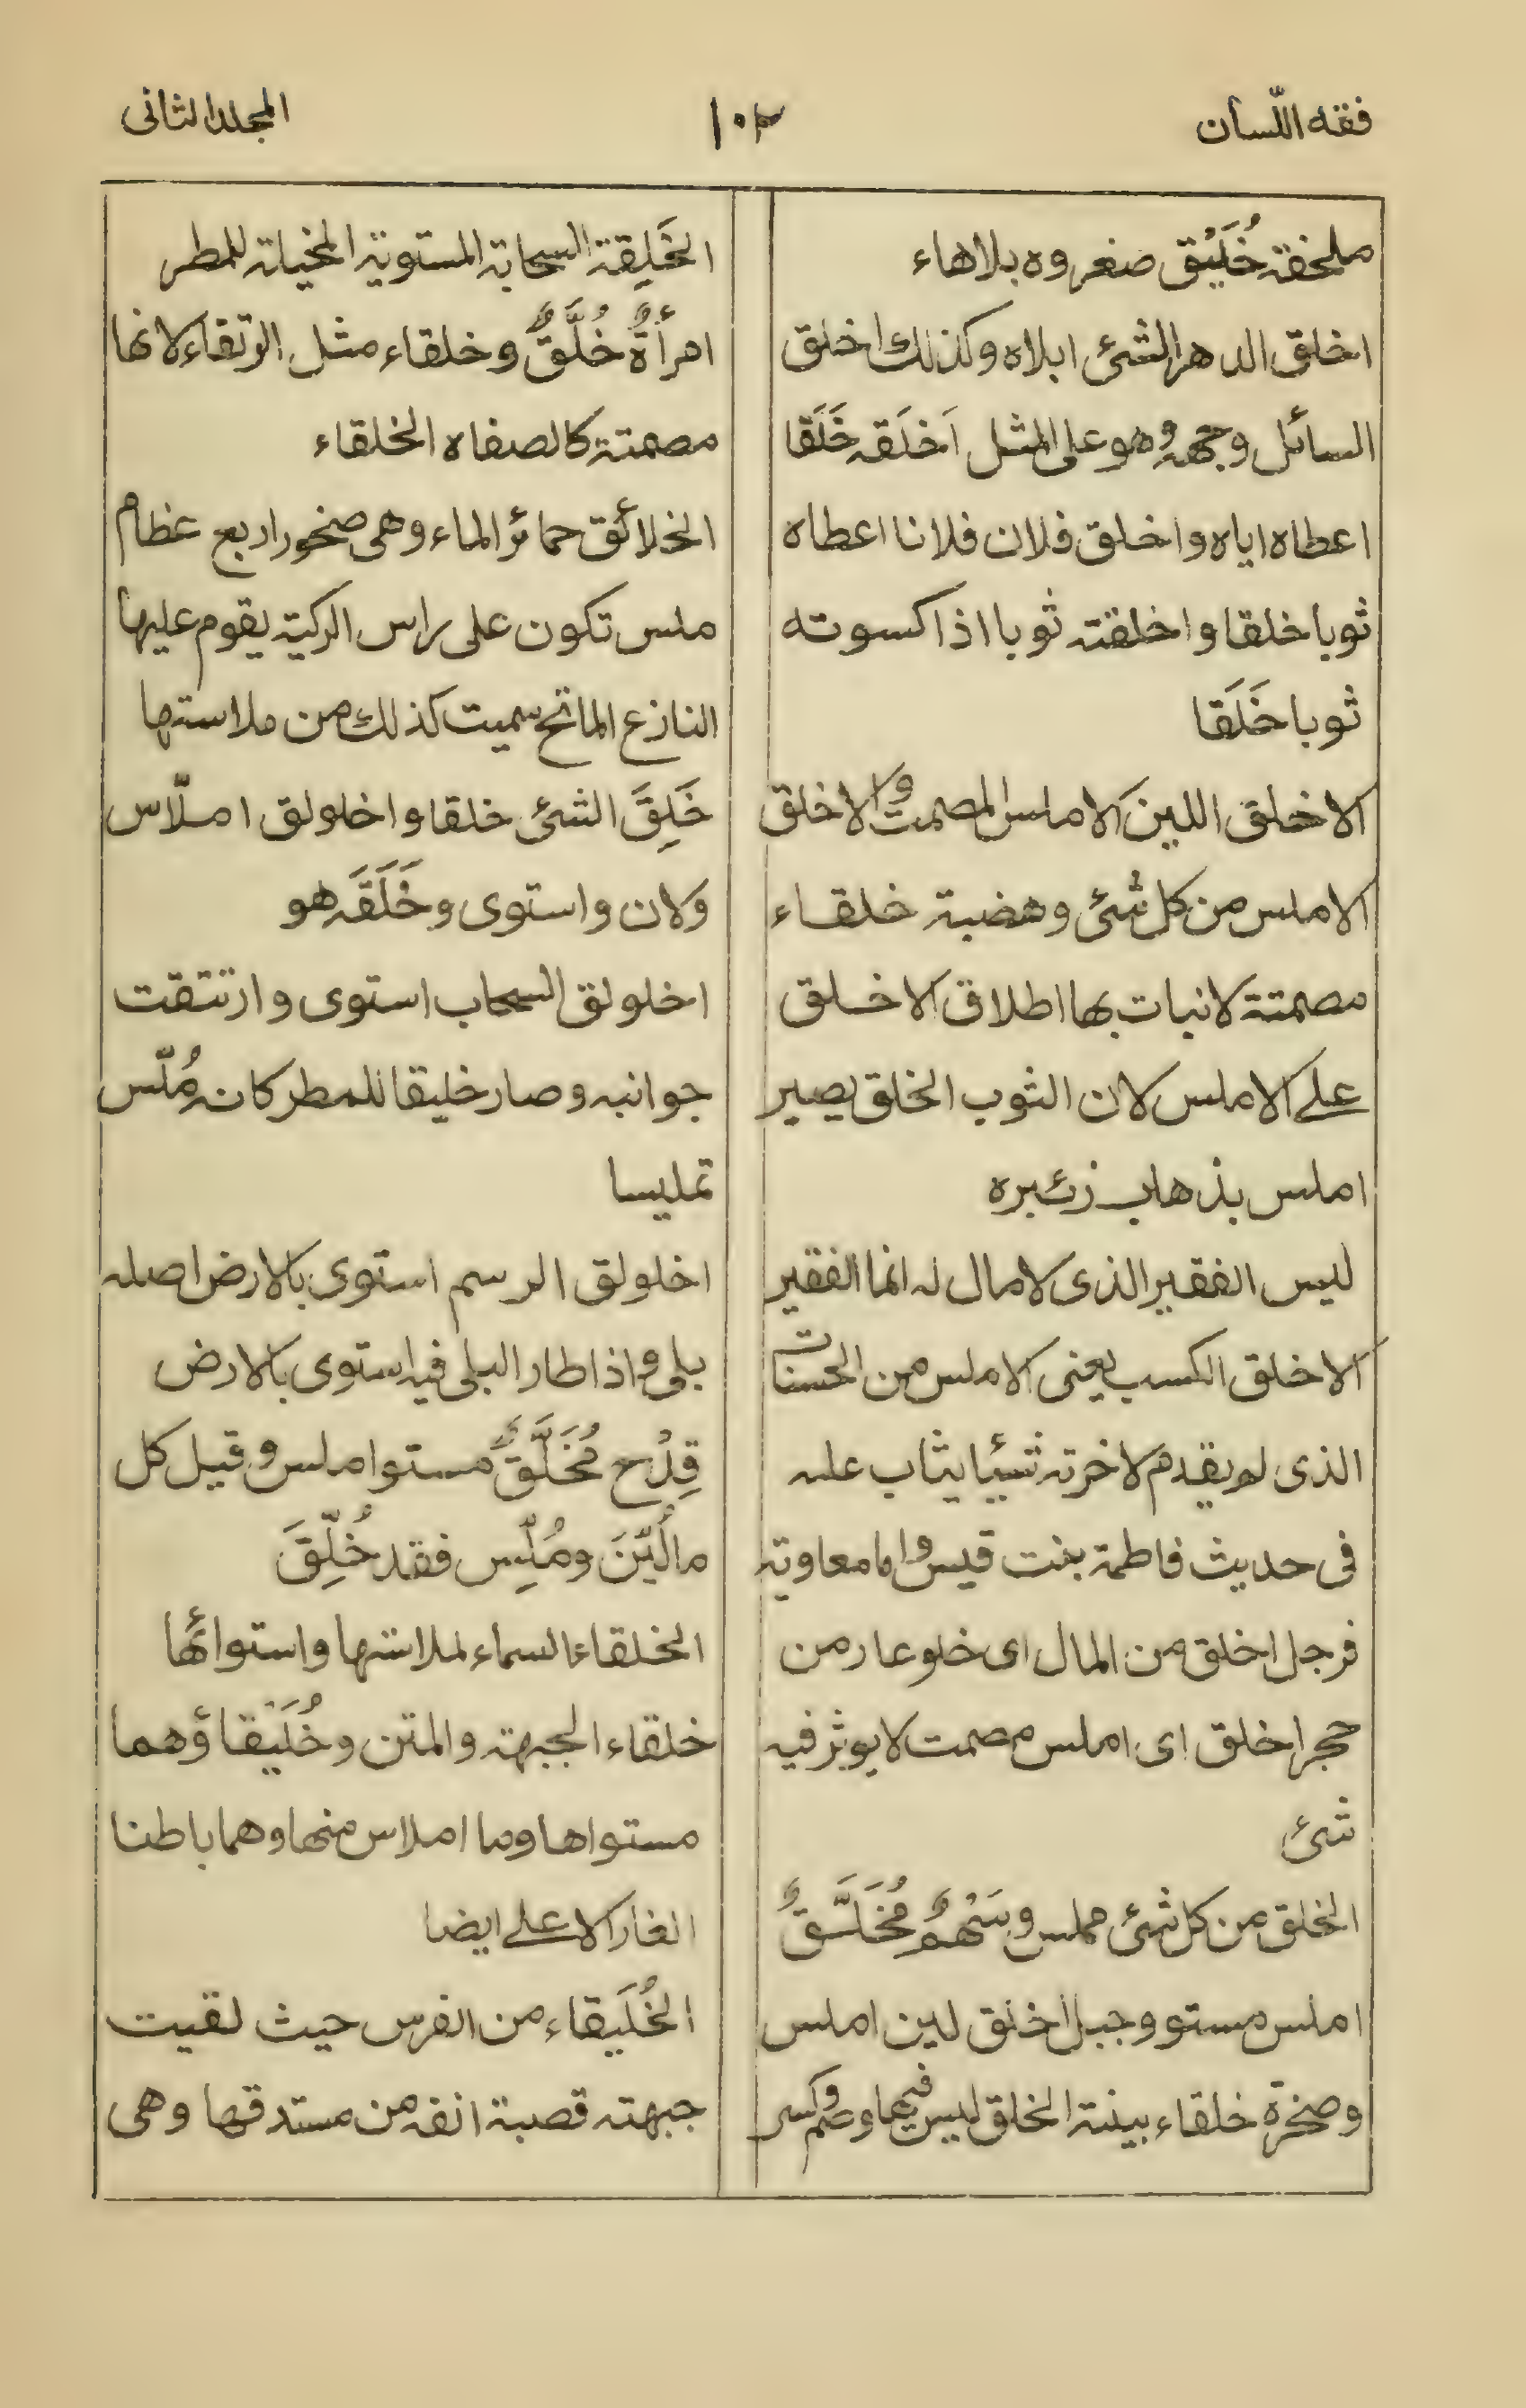 فقه اللّسان
۱۰۳
المجلد الثانى
ملحفة خُلَيْق صغروه بلاهاء
اخلق الدهر الشئ ابلاه وكذلك اخلق
السائل وجهه وهو على المثل اَخلَقه خَلَقا
اعطاه اياه واخلق فلان فلانا اعطاه
ثوبا خلقا واخلقته ثوبا اذا كسوته
ثوبا خَلَقا
الاخلق اللين الاملس المصمت والاخلق
الاملس من كل شئ وهضبة خلقاء
مصمتة لانبات بها اطلاق الاخلق
على الاملس لان الثوب الخلق يصير
املس بذهاب زئبره
ليس الفقير الذى لامال له انما الفقير
الاخلق الكسب يعنى الاملس من الحسنات
الذى لم يقدم لاخرته شيئا يثاب عليه
فى حديث فاطمة بنت قيس واما معاوية
فرجل اخلق من المال اى خلو عار من
حجر اخلق اى املس مصمت لايوثر فيه
شئ
المخلق من كل شئ مملس وسَهْمٌ مُخَلَّقٌ
املس مستو وجبل اخلق لين املس
وصخرة خلقاء بينة الخلق ليس فيها وصم وكسر
الخَلِقة السحابة المستوية المخيلة للمطر
امرأةٌ خُلَّقٌ وخلقاء مثل الرتقاء لانها
مصمتة كالصفاه الخلقاء
الخلائق حمائر الماء وهى صخور اربع عظام
ملس تكون على راس الركية يقوم عليها
النازع الماتح سميت كذلك من ملاستها
خَلِقَ الشئ خلقا واخلولق املّاس
ولان واستوى وخَلَقَه هو
اخلولق السحاب استوى وارتتقت
جوانبه وصار خليقا للمطر كانه مُلّس
تمليسا
اخلولق الرسم استوى بالارض اصله
بلى واذا طار البلى فيه استوى بالارض
قِدْح مُخَلَّقٌ مستو املس وقيل كل
ما لُيّنَ ومُلِّس فقد خُلِّقَ
الخلقاء السماء لملاستها واستوائها
خلقاء الجبهة والمتن وخُلَيْقاؤهما
مستواها وما املاس منها وهما باطنا
الغار الاعلى ايضا
الخُلَيقاء من الفرس حيث لقيت
جبهته قصبة انفه من مستدقها وهى